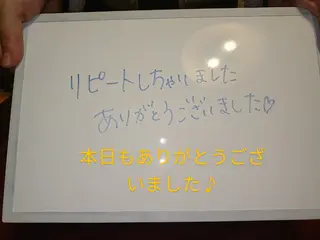 リピートしちゃいました
ありがとうございました♡
本日もありがとうござ
いました♪